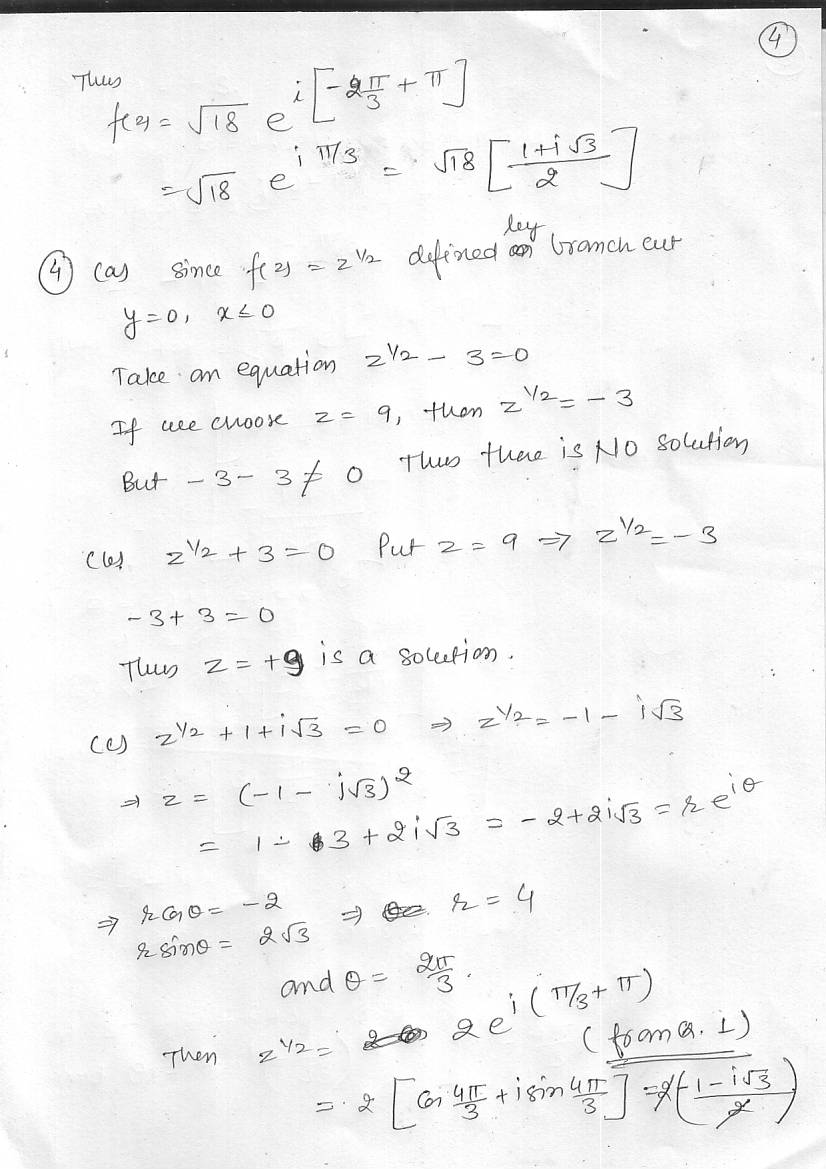 4
Thus
f(z) = √18 e^{i[-2π/3 + π]}
= √18 e^{i π/3} = √18 [ (1+i√3)/2 ]
4 (a) Since f(z) = z^{1/2} defined by branch cut
y=0, x≤0
Take an equation z^{1/2} - 3=0
If we choose z = 9, then z^{1/2} = -3
But -3-3 ≠ 0 Thus there is NO solution
(b) z^{1/2} + 3 = 0 Put z = 9 ⇒ z^{1/2} = -3
-3+3 = 0
Thus z = +9 is a solution.
(c) z^{1/2} + 1+i√3 = 0 ⇒ z^{1/2} = -1 - i√3
⇒ z = (-1 - i√3)^2
= 1 - 3 + 2i√3 = -2+2i√3 = r e^{iθ}
⇒ r cos θ = -2 ⇒ r = 4
r sin θ = 2√3
and θ = 2π/3.
Then z^{1/2} = 2 e^{i(π/3 + π)}
(from Q. 1)
= 2 [cos 4π/3 + i sin 4π/3] = 2 ((-1-i√3)/2)